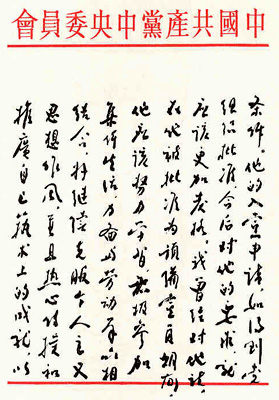 中國共產黨中央委員會
条件。他的入党申请如得到党
组织批准今后对他的要求就
应该更加严格。我曾经对他说，
在他被批准为预备党员期间，
他应该努力学习，积极参加
集体生活，力图与劳动群众相
结合，并继续克服个人主义
思想作风，并且热心传授和
推广自己藝术上的成就，以